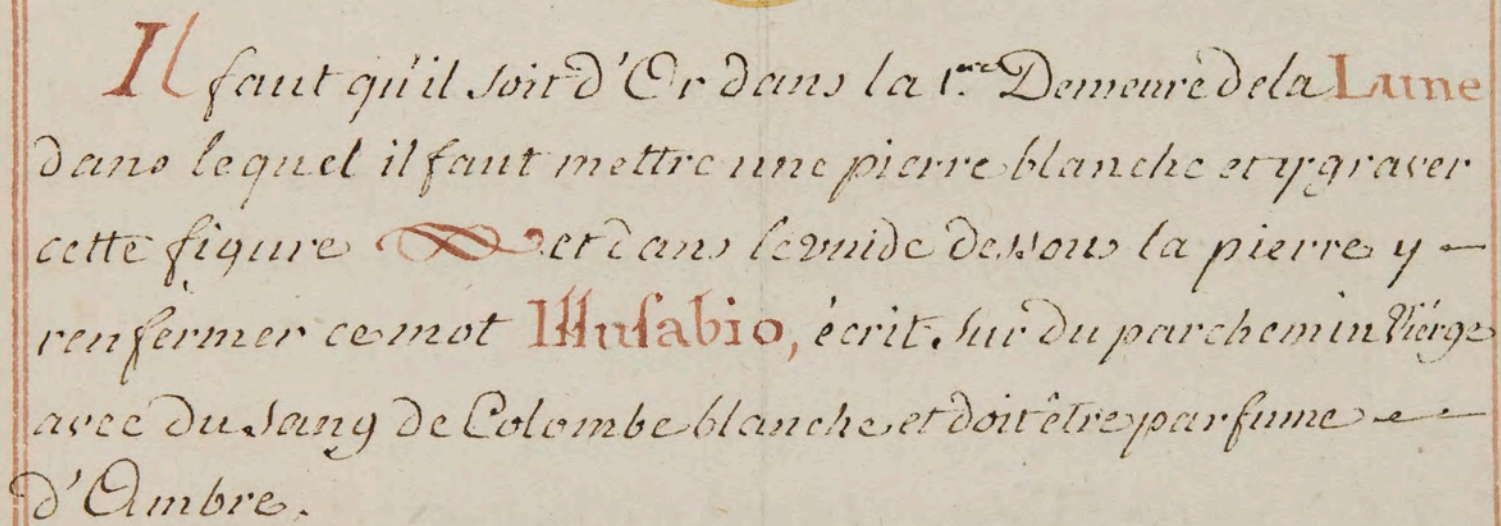 Il faut qu'il soit d'Or dans la 1.ere Demeure de la Lune
dans lequel il faut mettre une pierre blanche et y graver
cette figure et dans le vuide dessous la pierre y –
renfermer ce mot Illusabio, écrit sur du parchemin Vièrge
avec du sang de Colombe blanche et doit être parfume –
d'Ambre.